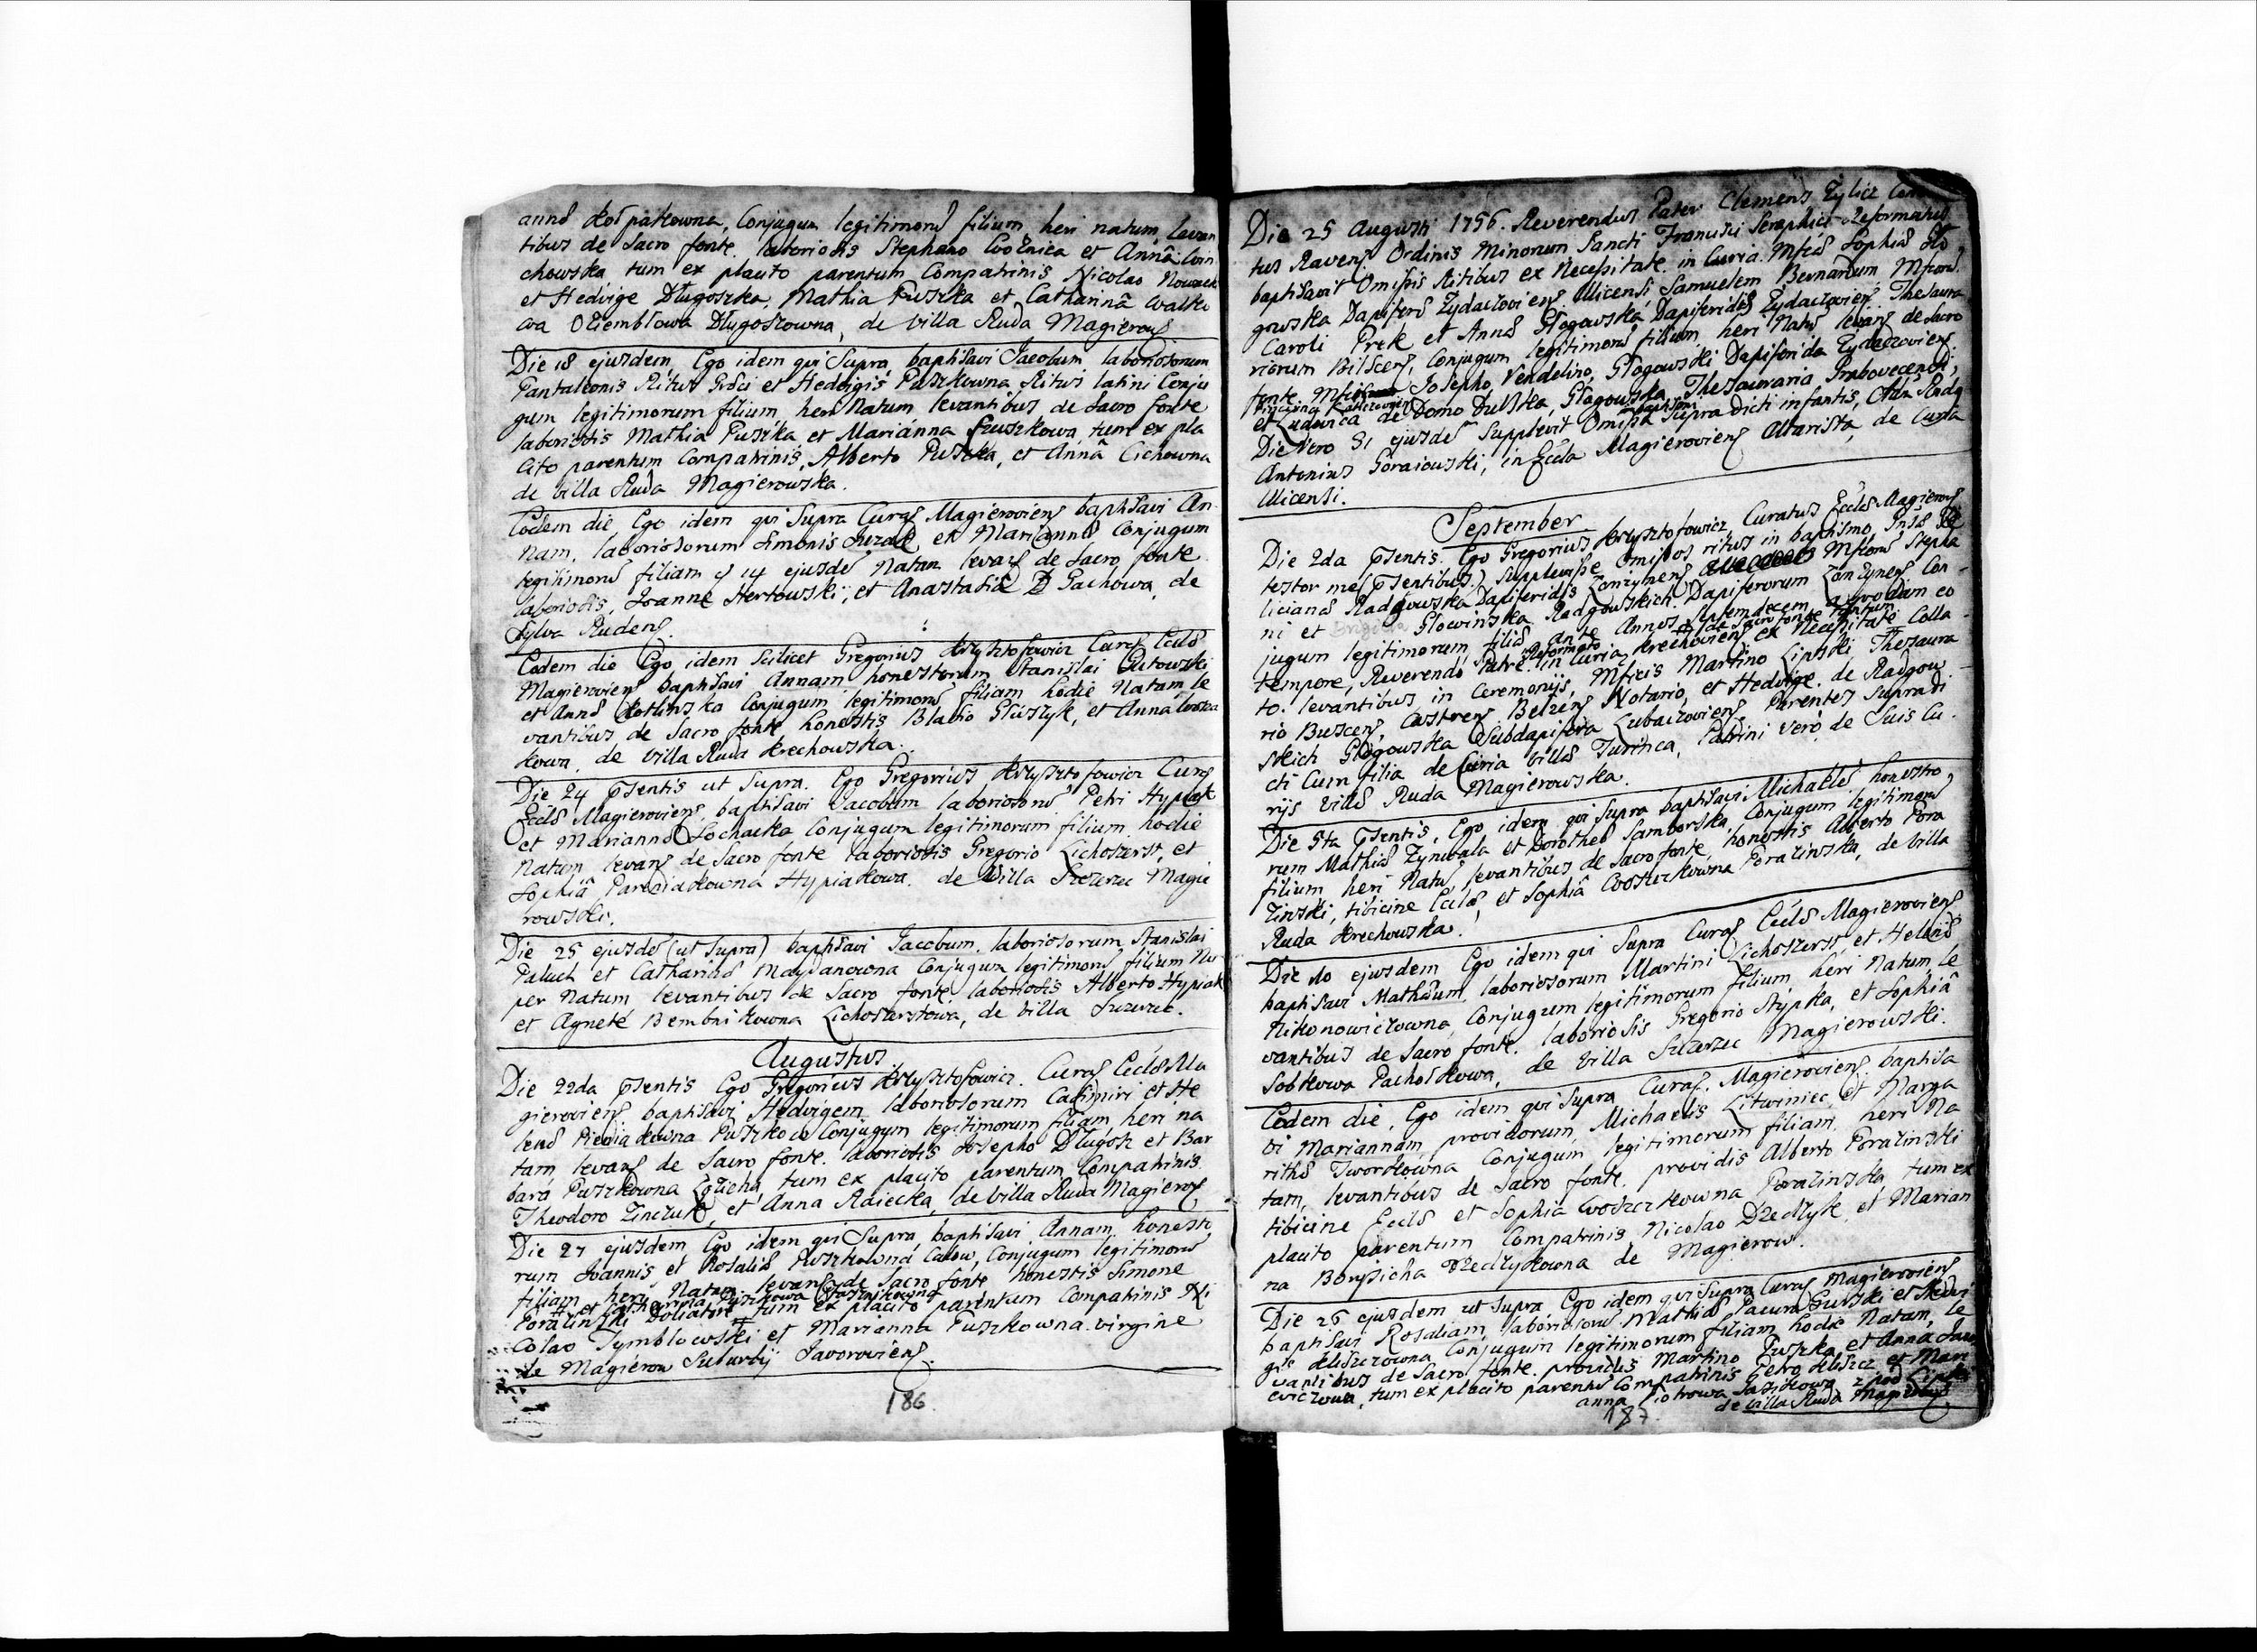 annæ Kośpatkowna, Conjugum legitimorũ filium heri natum, levan
tibus de Sacro fonte. laboriosis Stephano Woźnica et Annâ
chowska, tum ex placito parentum Compatrinis Nicolao Nowack
et Hedvige Długoszka, Mathia Puszka et Catharinâ Walko
wa Oziembłowa Długoszowna, de villa Ruda Magierovs
Die 18 ejusdem, Ego idem qui Supra, baptisavi Jacobum laboriosorum
Pantaleonis Ritus Græci et Hedvigis Puszkowna Ritus latini Conju
gum legitimorum filium, heri Natum levantibus de Sacro fonte
laboriosis Mathia Puszka et Marianna Pruszkowa, tum ex pla
cito parentum Compatrinis, Alberto Puszka, et Annâ Cichowna
de villa Ruda Magierowska.
Eodem die, Ego idem qui Supra Curas Magieroviens baptisavi An
nam, laboriosorum Simonis et Mariannæ Conjugum
legitimorũ filiam 14 ejusdẽ Natam levans de Sacro fonte
laboriosis, Joanne Hertowski, et Anastasiâ Pachowa, de
Sylva Rudens.
Eodem die Ego idem Scilicet Gregorius Krysztofowicz Curas Ecclæ
Magieroviens baptisavi Annam honestorum Stanislai Gutowski
et Annæ Kotlinska Conjugum legitimorũ filiam hodie Natam le
vantibus de Sacro fonte honestis Blasio Gluszyk, et Anna
kowa, de villa Ruda Krechowska.
Die 24 pſentis ut Supra. Ego Gregorius Krysztofowicz Curas
Ecclæ Magieroviens, baptisavi Jacobum laboriosorũ Petri Hypiak
et Mariannæ Sochacka Conjugum legitimorum filium hodie
Natum levans de Sacro fonte laboriosis Gregorio Lichoszerst, et
Sophiâ Paredziakowna Hypiakowa. de Villa Szczerzec Magie
rowski.
Die 25 ejusdẽ (ut Supra) baptisavi Jacobum laboriosorum Stanislai
Paluch et Catharinæ Maydanowna Conjugum legitimorũ filium Nu
per Natum levantibus de Sacro fonte laboriosis Alberto Hypiak
et Agnete Bembnikowna Lichoszerstowa, de villa Szczerzec.
Augustus.
Die 22da pſentis Ego Gregorius Krysztofowicz. Curas Ecclæ Ma
gieroviens baptisavi Hedvigem laboriosorum Casimiri et He
lenæ Piedziakowna Puszkow Conjugum legitimorum filiam, heri na
tam, levans de Sacro fonte. laboriosis Josepho Długosz et Bar
bara Puszkowna tum ex placito parentum Compatrinis
Theodoro et Anna Raiecka, de villa Ruda Magierovs
Die 27 ejusdem, Ego idem qui Supra, baptisavi Annam, honesto
rum Joannis et Rosaliæ Puszkowna Conjugum legitimorũ
filiam heri Natam levans de Sacro fonte honestis Simone
et Catharina Puszkowa
Poralinski tum ex placito parentum Compatrinis Ni
colao Tymblowski et Marianna Puszkowna virgine
de Magierow Suburbij Javoroviens.
186
Die 25 Augusti 1756. Reverendus Pater Clemens Zylicz
tus Ravens Ordinis Minorum Sancti Francisci Seraphici Reformatus
baptisavit Omissis Ritibus ex Necessitate. in Curia. Mfcæ Sophiæ Gło
gowska Dapiferæ Zydaczoviens Ulicensi, Samuelem Bernardum Mfcorũ
Caroli Prek et Annæ Głogowska Dapiferidis Zydaczoviens. Thesaura
riorum Bilscens, Conjugum legitimorũ filium, heri Natũ levans de Sacro
fonte Josepho Vendelino, Głogowski Dapiferida Zydaczoviens.
et Ludovica de Domo Dulska, Głogowska, Thesauraria
Die Vero 31 ejusdẽ Supplevit Omissa Supra dicti infantis,
Antonius Goraiowski, in Eccla Magieroviens Altarista, de Curia
Ulicensi.
September
Die 2da pſentis. Ego Gregorius Krysztofowicz Curatus Ecclæ Magierovs
testor me (pſentibus) Supplevisse Omissos ritus in baptismo
liciana Radgowska Dapiferidis Mfcorũ Stepha
ni et Głowinska Radgowskich. Dapiferorum Con
jugum legitimorum filiâ ante Annos Septemdecem, a quodam eo
tempore, Reverendo Patre Reformato in Curia Krechoviens ex Necessitate Colla
to. levantibus in Ceremonijs, Mfcis Martino Lipski Thesaura
rio Buscens, Castrens Belzens Notario, et Hedvige de Radgow
skich Głogowska Subdapifera Lubaczoviens. Parentes Supradi
cti Cum filia de Curia villæ Turinca, Patrini vero de Suis Cu
rijs villæ Ruda Magierowska.
Die 5ta pſentis, Ego idem qui Supra baptisavi Michaelẽ honesto
rum Mathiæ Zynwala et Dorotheæ Samborska, Conjugum legitimorũ
filium, heri Natũ levantibus de Sacro fonte, honestis Alberto Pora
linski, tibicine Ecclæ, et Sophiâ Woszczkowna Poralinska, de villa
Ruda Krechowska.
Die 10 ejusdem Ego idem qui Supra Curas Ecclæ Magieroviens
baptisavi Mathæum, laboriosorum Martini Lichoszerst et Helenæ
Nikonowiczowna, Conjugum legitimorum filium, heri Natum le
vantibus de Sacro fonte. laboriosis Gregorio Stypka, et Sophiâ
Sobkowa Pachołkowa, de villa Szczerzec Magierowski.
Eodem die, Ego idem qui Supra Curas. Magieroviens. baptisa
vi Mariannam, providorum, Michaelis Litwiniec, et Marga
rithæ Tworkowna Conjugum legitimorum filiam, heri Na
tam, levantibus de Sacro fonte. providis Alberto Poralinski
tibicine Ecclæ et Sophia Woszczkowna Poralinska, tum ex
placito parentum Compatrinis, Nicolao Dzedzyk, et Marian
na Borysicha Dzedzykowna de Magierow.
Die 26 ejusdem ut Supra, Ego idem qui Supra Curas Magieroviens
baptisavi Rosaliam, laboriosorũ Mathiæ Pacura Gurski et Hedvi
gis Conjugum legitimorum filiam, hodie Natam, le
vantibus de Sacro fonte. providis Martino Puszka, et Anna
tum ex placito parentũ Compatrinis Petro et Mari
anna Piotrowa
de villa Ruda Magierovs
187.